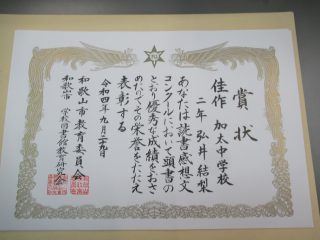 賞状
佳作 加太中学校
二年 弘井結梨
あなたは読書感想文
コンクールにおいて頭書の
とおり優秀な成績をおさ
めたのでその栄誉をたたえ
表彰する
令和四年九月二十九日
和歌山市教育委員会
和歌山市 学校図書館教育研究会